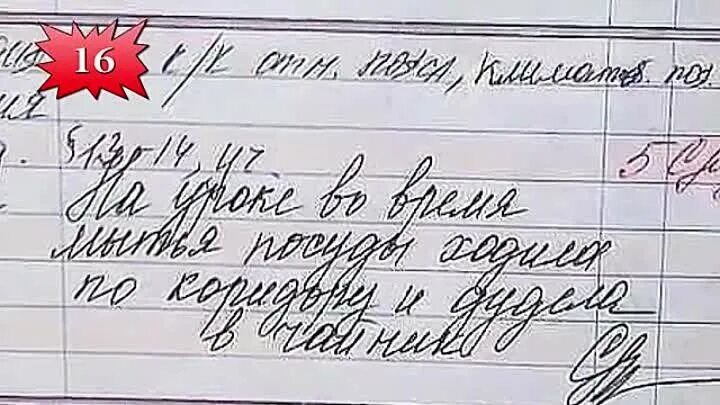 16
к/к отн. поясн, климатоб. поя.
ия
§13-14, чт.
5
На уроке во время
мытья посуды ходила
по коридору и дудела
в чайник